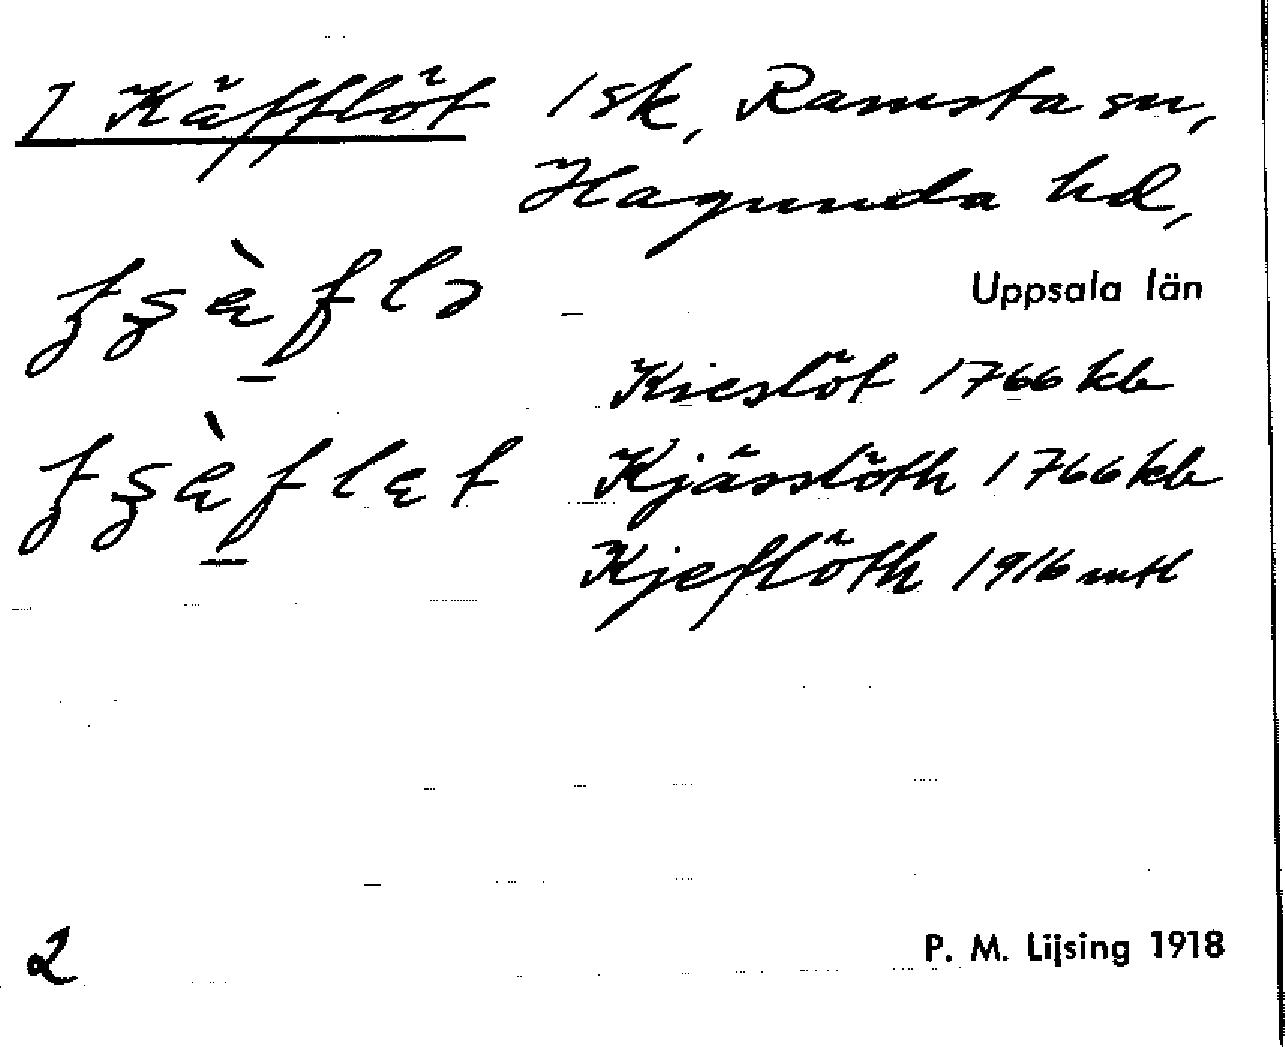 7 Käfflöt 1 sk, Ramsta sn,
Hagunda hd,
Uppsala län
Kieslöt 1766 kb
Kjässlöth 1766 kb
Kjeflöth 1916 mtl
2
P. M. Lijsing 1918